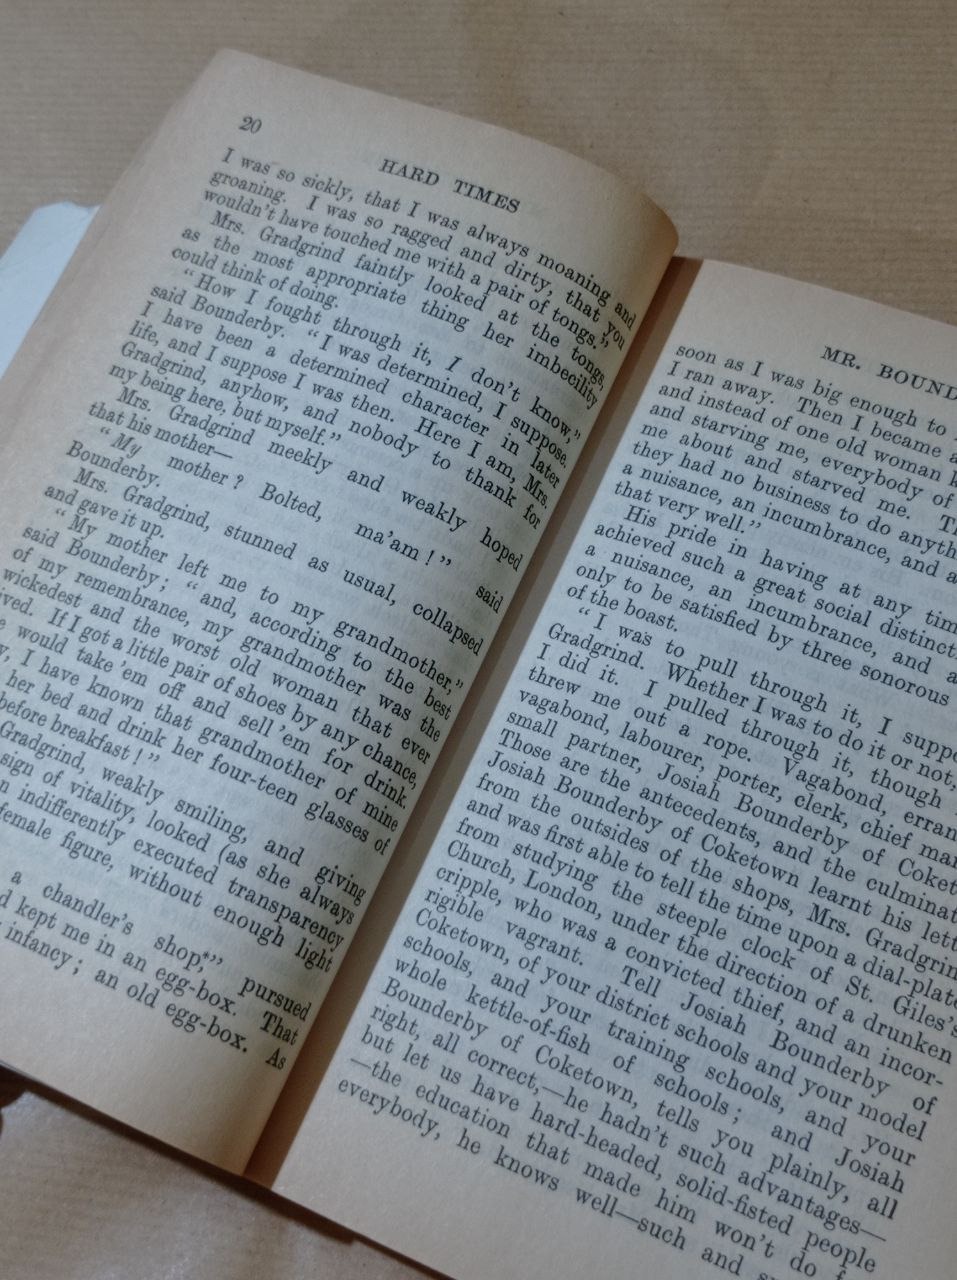 20
HARD TIMES
I was so sickly, that I was always moaning and
groaning. I was so ragged and dirty, that you
wouldn't have touched me with a pair of tongs."
Mrs. Gradgrind faintly looked at the tongs,
as the most appropriate thing her imbecility
could think of doing.
"How I fought through it, I don't know,"
said Bounderby. "I was determined, I suppose.
I have been a determined character in later
life, and I suppose I was then. Here I am, Mrs.
Gradgrind, anyhow, and nobody to thank for
my being here, but myself."
Mrs. Gradgrind meekly and weakly hoped
that his mother—
"My mother? Bolted, ma'am!" said
Bounderby.
Mrs. Gradgrind, stunned as usual, collapsed
and gave it up.
"My mother left me to my grandmother,"
said Bounderby; "and, according to the best
of my remembrance, my grandmother was the
wickedest and the worst old woman that ever
ived. If I got a little pair of shoes by any chance,
e would take 'em off and sell 'em for drink.
y, I have known that grandmother of mine
her bed and drink her four-teen glasses of
before breakfast!"
Gradgrind, weakly smiling, and giving
sign of vitality, looked (as she always
n indifferently executed transparency
female figure, without enough light
a chandler's shop," pursued
d kept me in an egg-box. That
infancy; an old egg-box. As
MR. BOUND
soon as I was big enough to
I ran away. Then I became a
and instead of one old woman k
and starving me, everybody of
me about and starved me. T
they had no business to do anyth
a nuisance, an incumbrance, and a
that very well."
His pride in having at any tim
achieved such a great social distinct
a nuisance, an incumbrance, and a
only to be satisfied by three sonorous
of the boast.
"I was to pull through it, I suppo
Gradgrind. Whether I was to do it or not,
I did it. I pulled through it, though
threw me out a rope. Vagabond, erran
vagabond, labourer, porter, clerk, chief man
small partner, Josiah Bounderby of Coket
Those are the antecedents, and the culminat
Josiah Bounderby of Coketown learnt his lett
from the outsides of the shops, Mrs. Gradgrin
and was first able to tell the time upon a dial-plate
from studying the steeple clock of St. Giles's
Church, London, under the direction of a drunken
cripple, who was a convicted thief, and an incor-
rigible vagrant. Tell Josiah Bounderby of
Coketown, of your district schools and your model
schools, and your training schools, and your
whole kettle-of-fish of schools; and Josiah
Bounderby of Coketown, tells you plainly, all
right, all correct,—he hadn't such advantages—
but let us have hard-headed, solid-fisted people
—the education that made him won't do f
everybody, he knows well—such and su